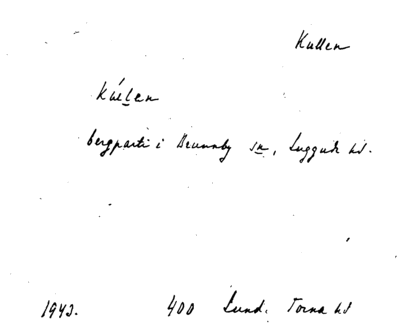 Kullen
Kúl̲en
bergparti i Brunnby sn, Luggude hd.
1943. 400 Lund. Torna hd